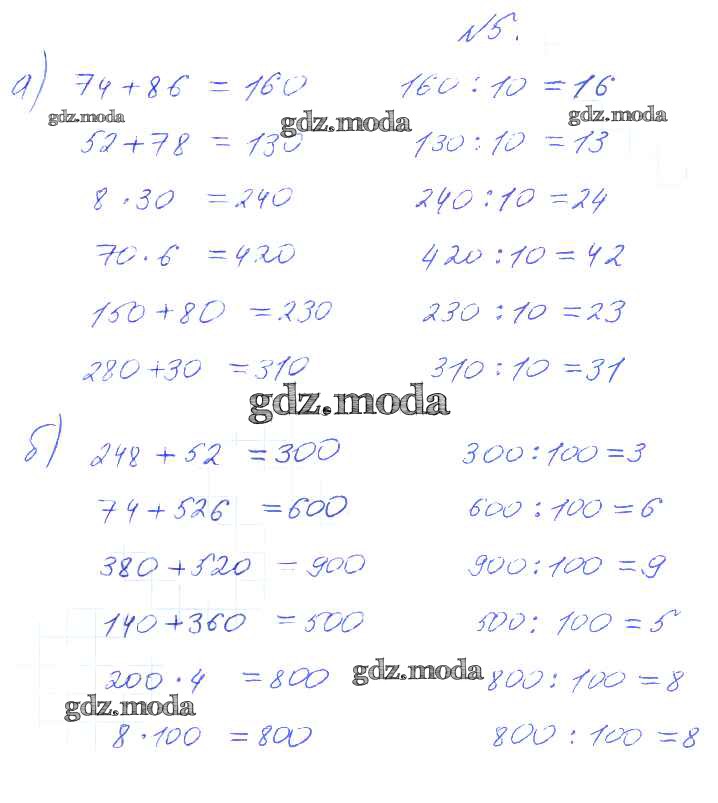 №5.
а) 74 + 86 = 160 160 : 10 = 16
gdz.moda gdz.moda gdz.moda
52 + 78 = 130 130 : 10 = 13
8 · 30 = 240 240 : 10 = 24
70 · 6 = 420 420 : 10 = 42
150 + 80 = 230 230 : 10 = 23
280 + 30 = 310 310 : 10 = 31
gdz.moda
б) 248 + 52 = 300 300 : 100 = 3
74 + 526 = 600 600 : 100 = 6
380 + 520 = 900 900 : 100 = 9
140 + 360 = 500 500 : 100 = 5
gdz.moda
200 · 4 = 800 800 : 100 = 8
gdz.moda
8 · 100 = 800 800 : 100 = 8